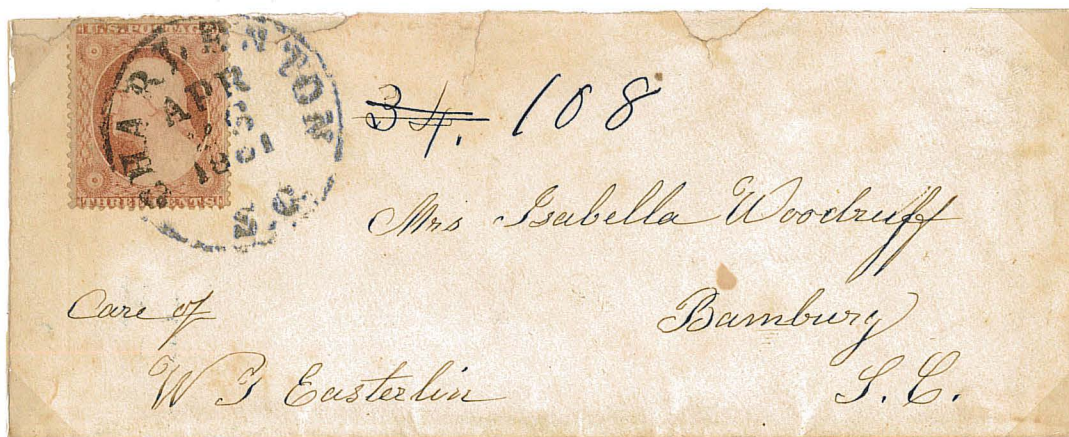 U.S. POSTAGE
THREE CENTS
CHARLESTON
APR
1861
S.C.
34. 108
Mrs Isabella Woodruff
Bamburg
S. C.
Care of
W J Easterlin